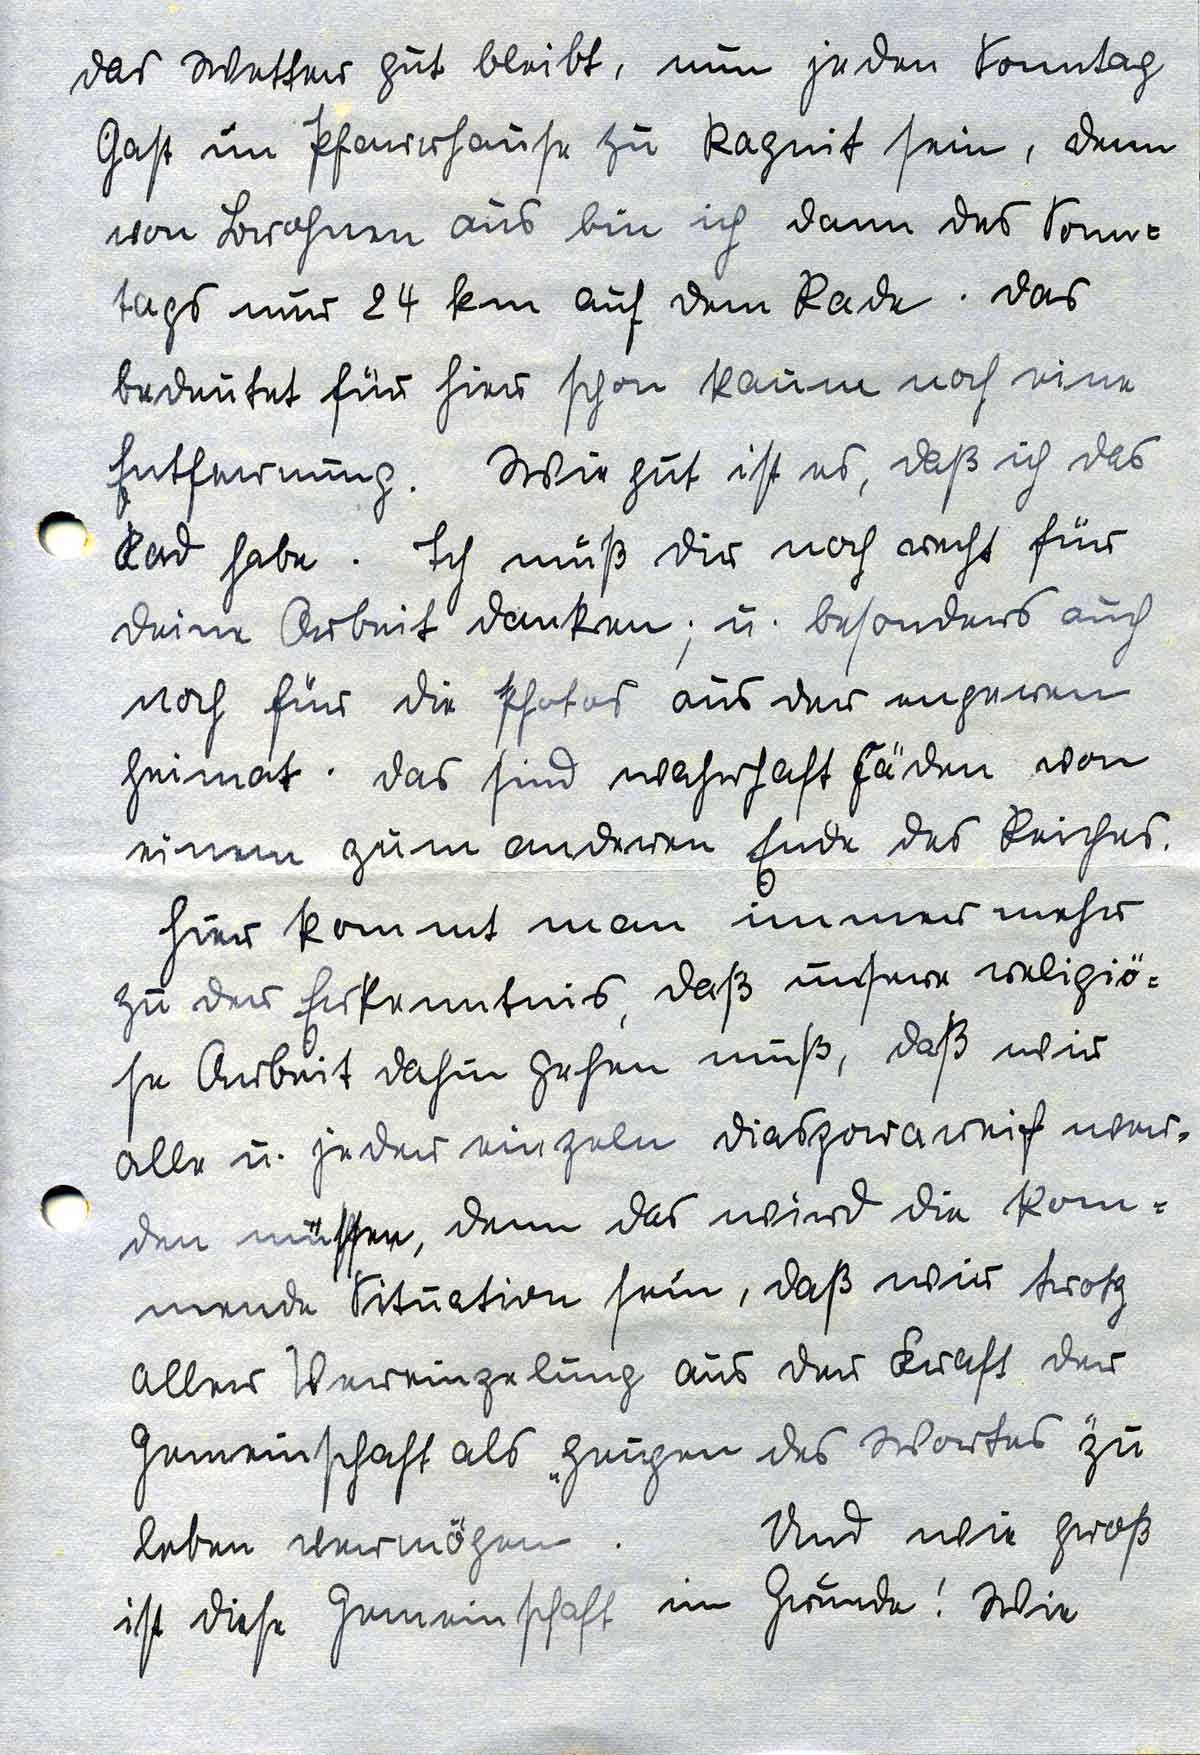 das Wetter gut bleibt, nun jeden Sonntag
Gast im Pfarrhause zu Ragnit sein, denn
von aus bin ich dann des Sonn=
tags nur 24 km auf dem Rade. Das
bedeutet für hier schon kaum noch eine
Entfernung. Wie gut ist es, daß ich das
Rad habe. Ich muß Dir noch recht für
Deine Arbeit danken; u. besonders auch
noch für die Photos aus der engeren
Heimat. Das sind wahrhaft Fäden von
einem zum anderen Ende des Reiches.
Hier kommt man immer mehr
zu der Erkenntnis, daß unsere religiö=
se Arbeit dahin gehen muß, daß wir
alle u. jeder einzeln diasporareif wer=
den müssen, denn das wird die kom=
mende Situation sein, daß wir trotz
aller Vereinzelung aus der Kraft der
Gemeinschaft als „Zeugen des Wortes zu
leben vermögen. Und wie groß
ist diese Gemeinschaft im Grunde! Wie